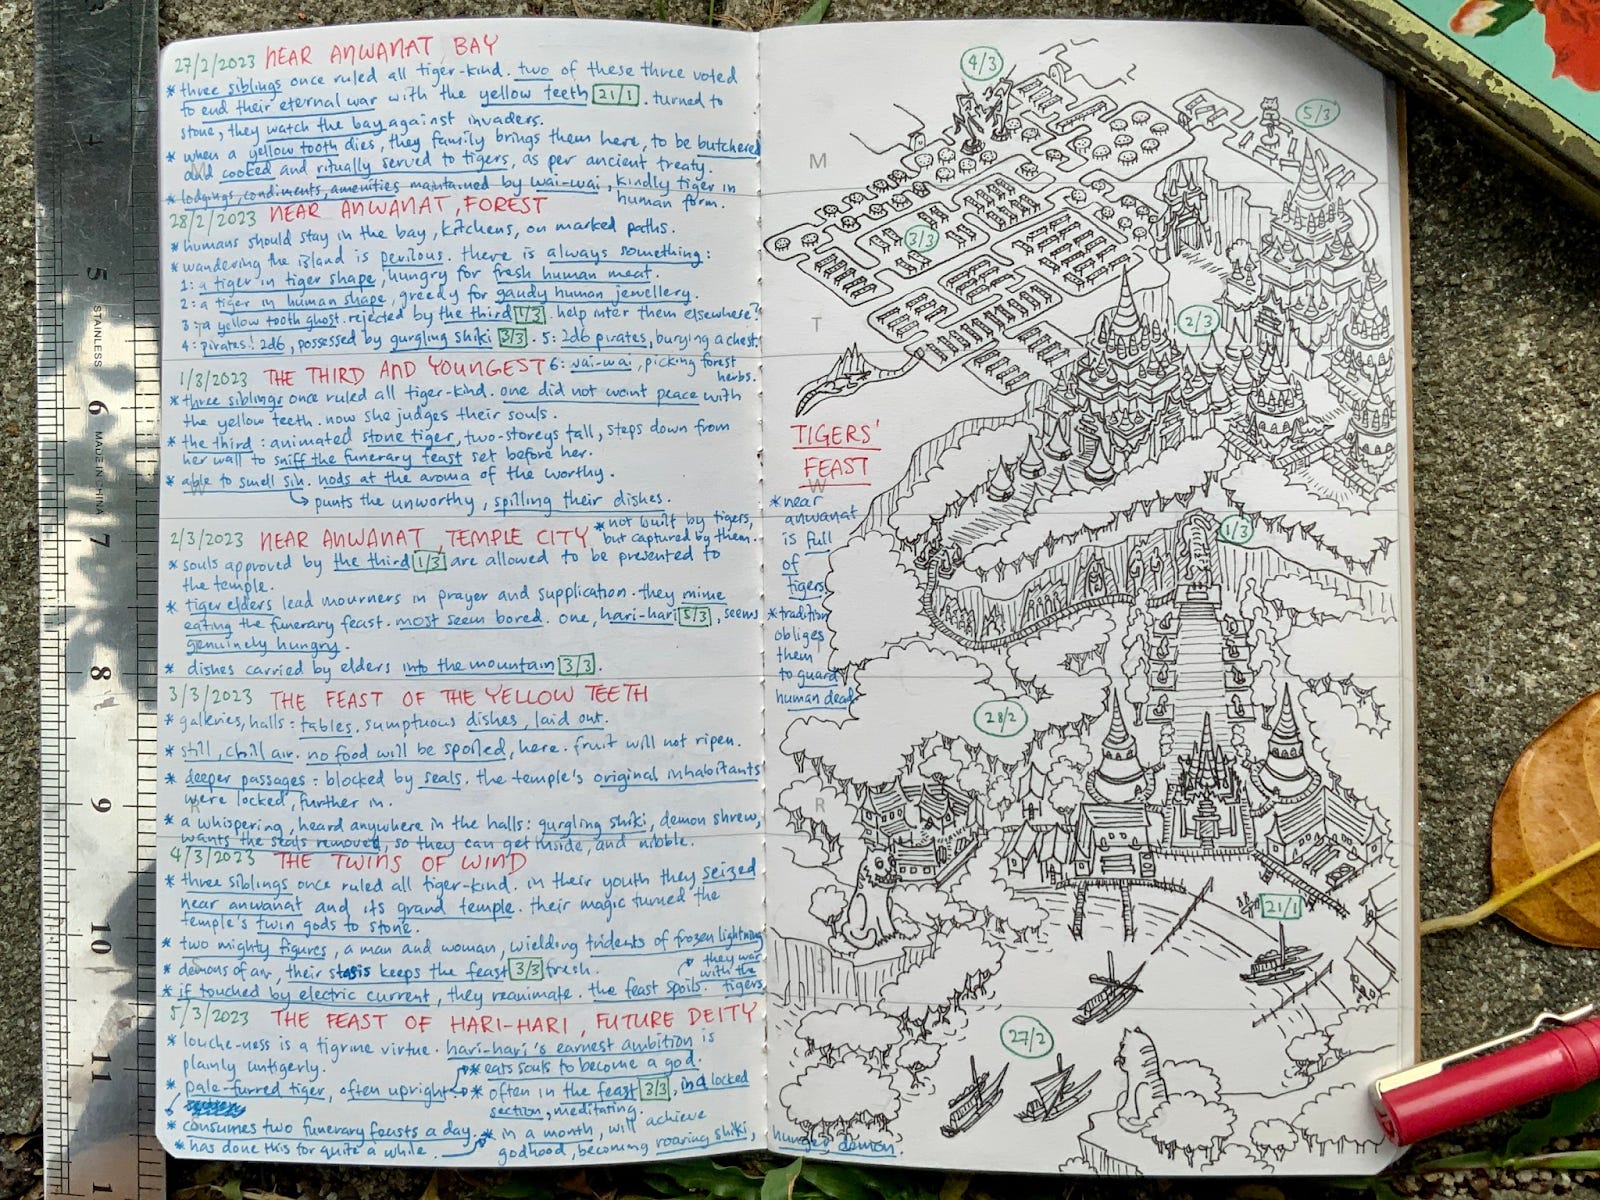 27/2/2023 NEAR ANWANAT BAY
* three siblings once ruled all tiger-kind. two of these three voted
to end their eternal war with the yellow teeth 21/1. turned to
stone, they watch the bay against invaders.
* when a yellow tooth dies, they family brings them here, to be butchered
and cooked and ritually served to tigers, as per ancient treaty.
* lodgings, condiments, amenities maintained by wai-wai, kindly tiger in
human form.
28/2/2023 NEAR ANWANAT, FOREST
* humans should stay in the bay, kitchens, on marked paths.
* wandering the island is perilous. there is always something:
1: a tiger in tiger shape, hungry for fresh human meat.
2: a tiger in human shape, greedy for gaudy human jewellery.
3: a yellow tooth ghost. rejected by the third 1/3. help inter them elsewhere?
4: pirates! 2d6, possessed by gurgling shiki 3/3. 5: 2d6 pirates, burying a chest.
6: wai-wai, picking forest
herbs.
1/3/2023 THE THIRD AND YOUNGEST
* three siblings once ruled all tiger-kind. one did not want peace with
the yellow teeth. now she judges their souls.
* the third: animated stone tiger, two-storeys tall, steps down from
her wall to sniff the funerary feast set before her.
* able to smell sin. nods at the aroma of the worthy.
↳ punts the unworthy, spilling their dishes.
2/3/2023 NEAR ANWANAT, TEMPLE CITY
* not built by tigers,
but captured by them.
* souls approved by the third 1/3 are allowed to be presented to
the temple.
* tiger elders lead mourners in prayer and supplication. they mime
eating the funerary feast. most seem bored. one, hari-hari 5/3, seems
genuinely hungry.
* dishes carried by elders into the mountain 3/3.
3/3/2023 THE FEAST OF THE YELLOW TEETH
* galleries, halls: tables. sumptuous dishes, laid out.
* still, chill air. no food will be spoiled, here. fruit will not ripen.
* deeper passages: blocked by seals. the temple's original inhabitants
were locked, further in.
* a whispering, heard anywhere in the halls: gurgling shiki, demon shrew,
wants the seals removed, so they can get inside, and nibble.
4/3/2023 THE TWINS OF WIND
* three siblings once ruled all tiger-kind. in their youth they seized
near anwanat and its grand temple. their magic turned the
temple's twin gods to stone.
* two mighty figures, a man and woman, wielding tridents of frozen lightning
* demons of air, their stasis keeps the feast 3/3 fresh.
↗ they war
with the
tigers
* if touched by electric current, they reanimate. the feast spoils.
5/3/2023 THE FEAST OF HARI-HARI, FUTURE DEITY
* louche-ness is a tigrine virtue. hari-hari's earnest ambition is
plainly untigerly.
* eats souls to become a god.
* pale-furred tiger, often upright
* often in the feast 3/3, in a locked
section, meditating.
* consumes two funerary feasts a day.
* has done this for quite a while.
* in a month, will achieve
godhood, becoming roaring shiki, hunger demon.
M
T
W
R
S
TIGERS'
FEAST
* near
anwanat
is full
of
tigers
* tradition
obliges
them
to guard
human dead
4/3
5/3
3/3
2/3
1/3
28/2
21/1
27/2
STAINLESS
MADE IN CHINA
4
5
6
7
8
9
10
11
1